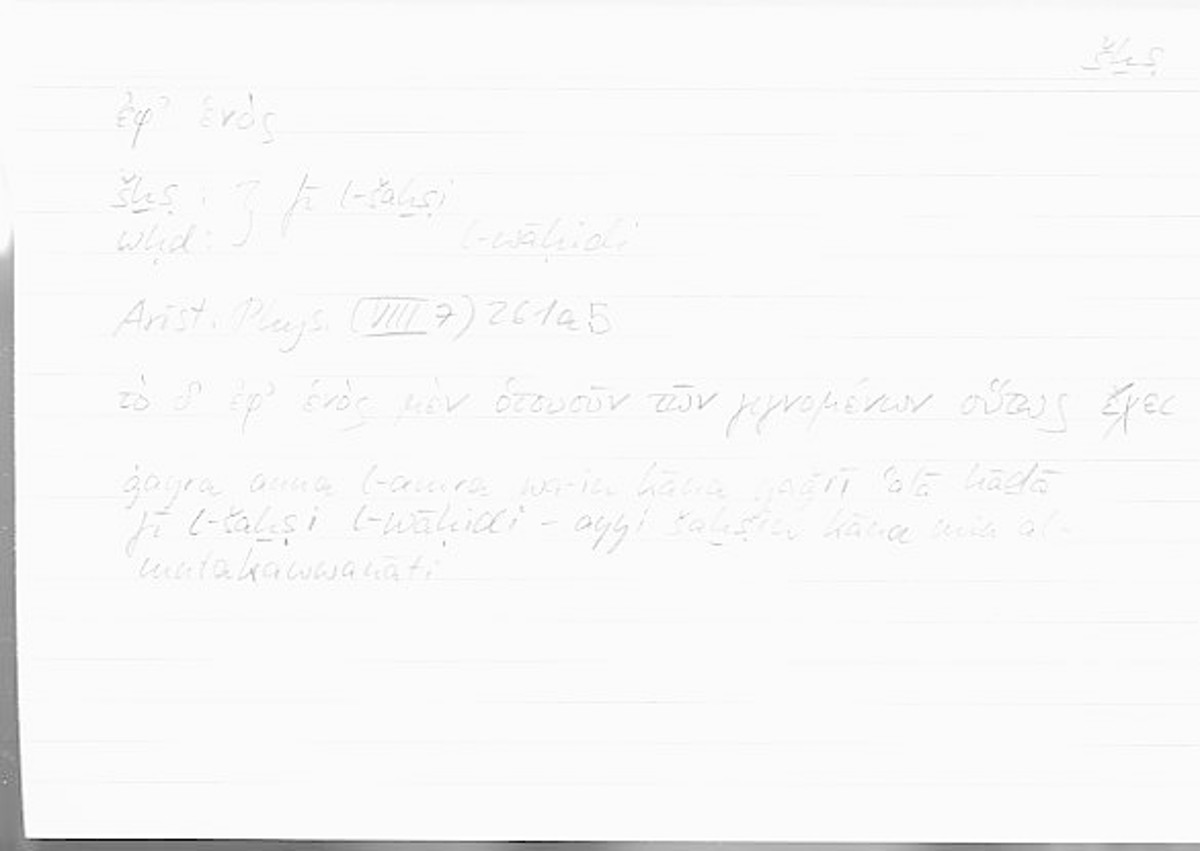 šḫṣ
ἐφ' ἑνὸς
šḫṣ : } fī l-šaḫṣi
wḥd : } l-wāḥidi
Arist. Phys. (VIII 7) 261a5
τὸ δ' ἐφ' ἑνὸς μὲν ὁτουοῦν τῶν γιγνομένων οὕτως ἔχει
ġayra anna l-amra wa-in kāna yaǧrī ʿalā hāḏā
fī l-šaḫṣi l-wāḥidi – ayyi šaḫṣin kāna min al-
mutakawwanāti